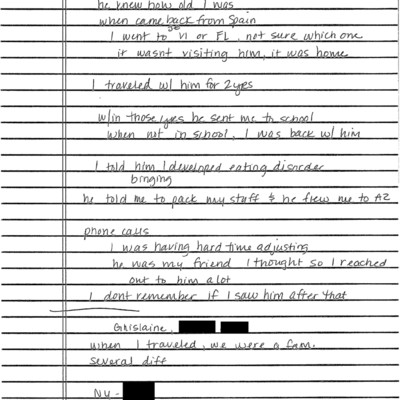 he knew how old I was
when came back from Spain
I went to VI or FL, not sure which one
it wasnt visiting him, it was home
I traveled w/ him for 2yrs
w/in those 2yrs he sent me to school
when not in school, I was back w/ him
I told him I developed eating disorder
binging
he told me to pack my stuff & he flew me to AZ
phone calls
I was having hard time adjusting
he was my friend I thought so I reached
out to him alot
I dont remember if I saw him after that
Ghislaine,
when I traveled, we were a fam.
several diff
NY -